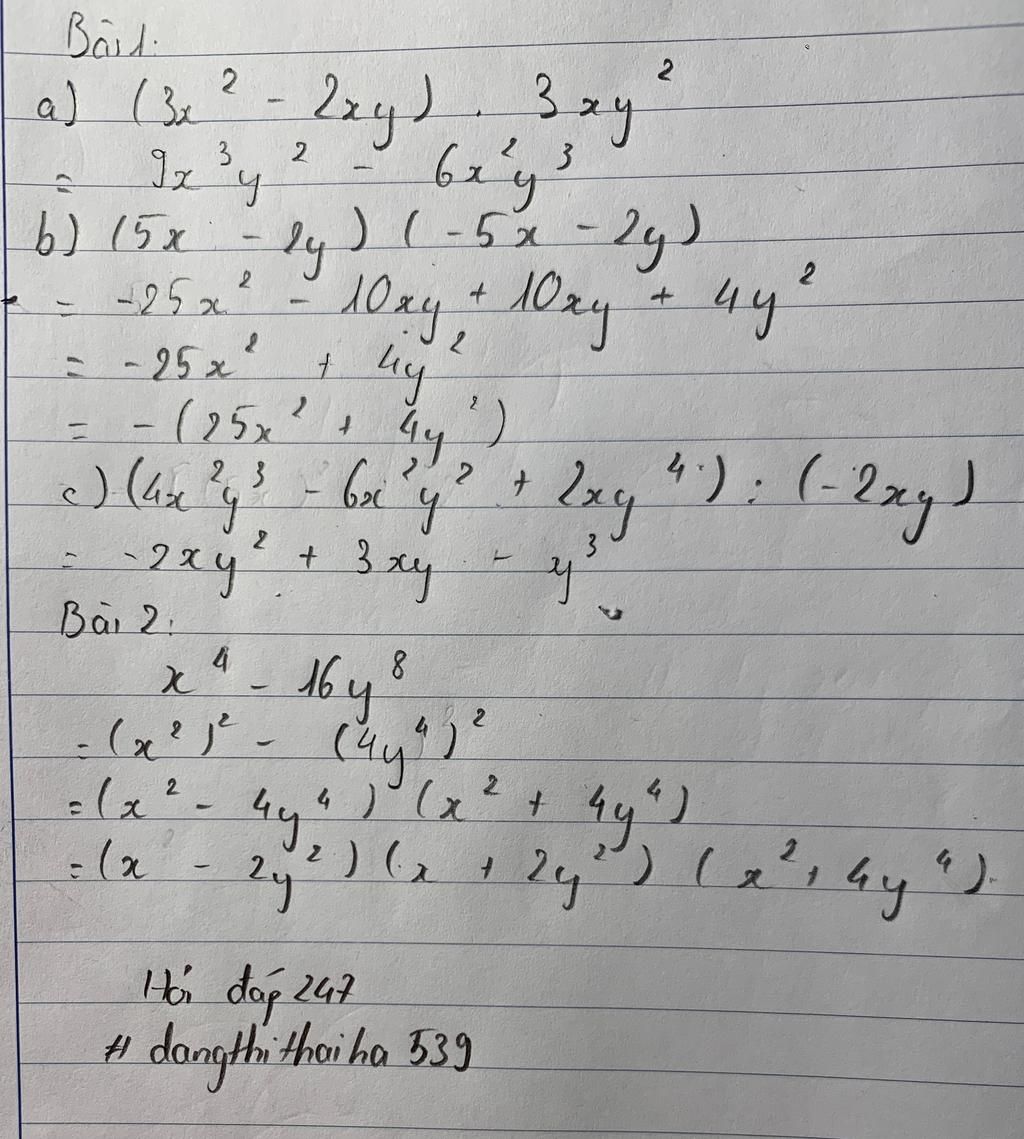 Bài 1:
a) (3x² - 2xy) . 3xy²
= 9x³y² - 6x²y³
b) (5x - 2y) (-5x - 2y)
= -25x² - 10xy + 10xy + 4y²
= -25x² + 4y²
= -(25x² + 4y²)
c) (4x²y³ - 6x²y² + 2xy⁴) : (-2xy)
= -2xy² + 3xy - y³
Bài 2:
x⁴ - 16y⁸
= (x²)² - (4y⁴)²
= (x² - 4y⁴) (x² + 4y⁴)
= (x - 2y²) (x + 2y²) (x² + 4y⁴).
Hỏi đáp 247
# dangthithaiha 539